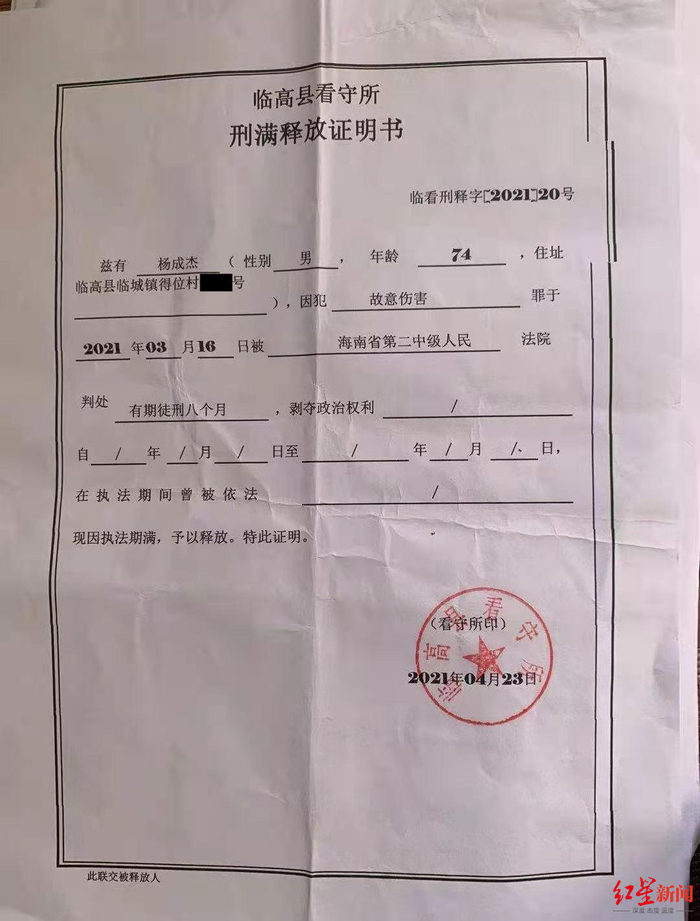 临高县看守所
刑满释放证明书
临看刑释字[2021]20号
兹有 杨成杰 （性别 男 ， 年龄 74 ，住址
临高县临城镇得位村 号
），因犯 故意伤害 罪于
2021 年 03 月 16 日被 海南省第二中级人民 法院
判处 有期徒刑八个月 ，剥夺政治权利 /
自 / 年 / 月 / 日至 / 年 / 月 /、 日，
在执法期间曾被依法 /
现因执法期满，予以释放。特此证明。
（看守所印）
临高县看守所
2021年04月23日
此联交被释放人
红星新闻
深度 态度 温度